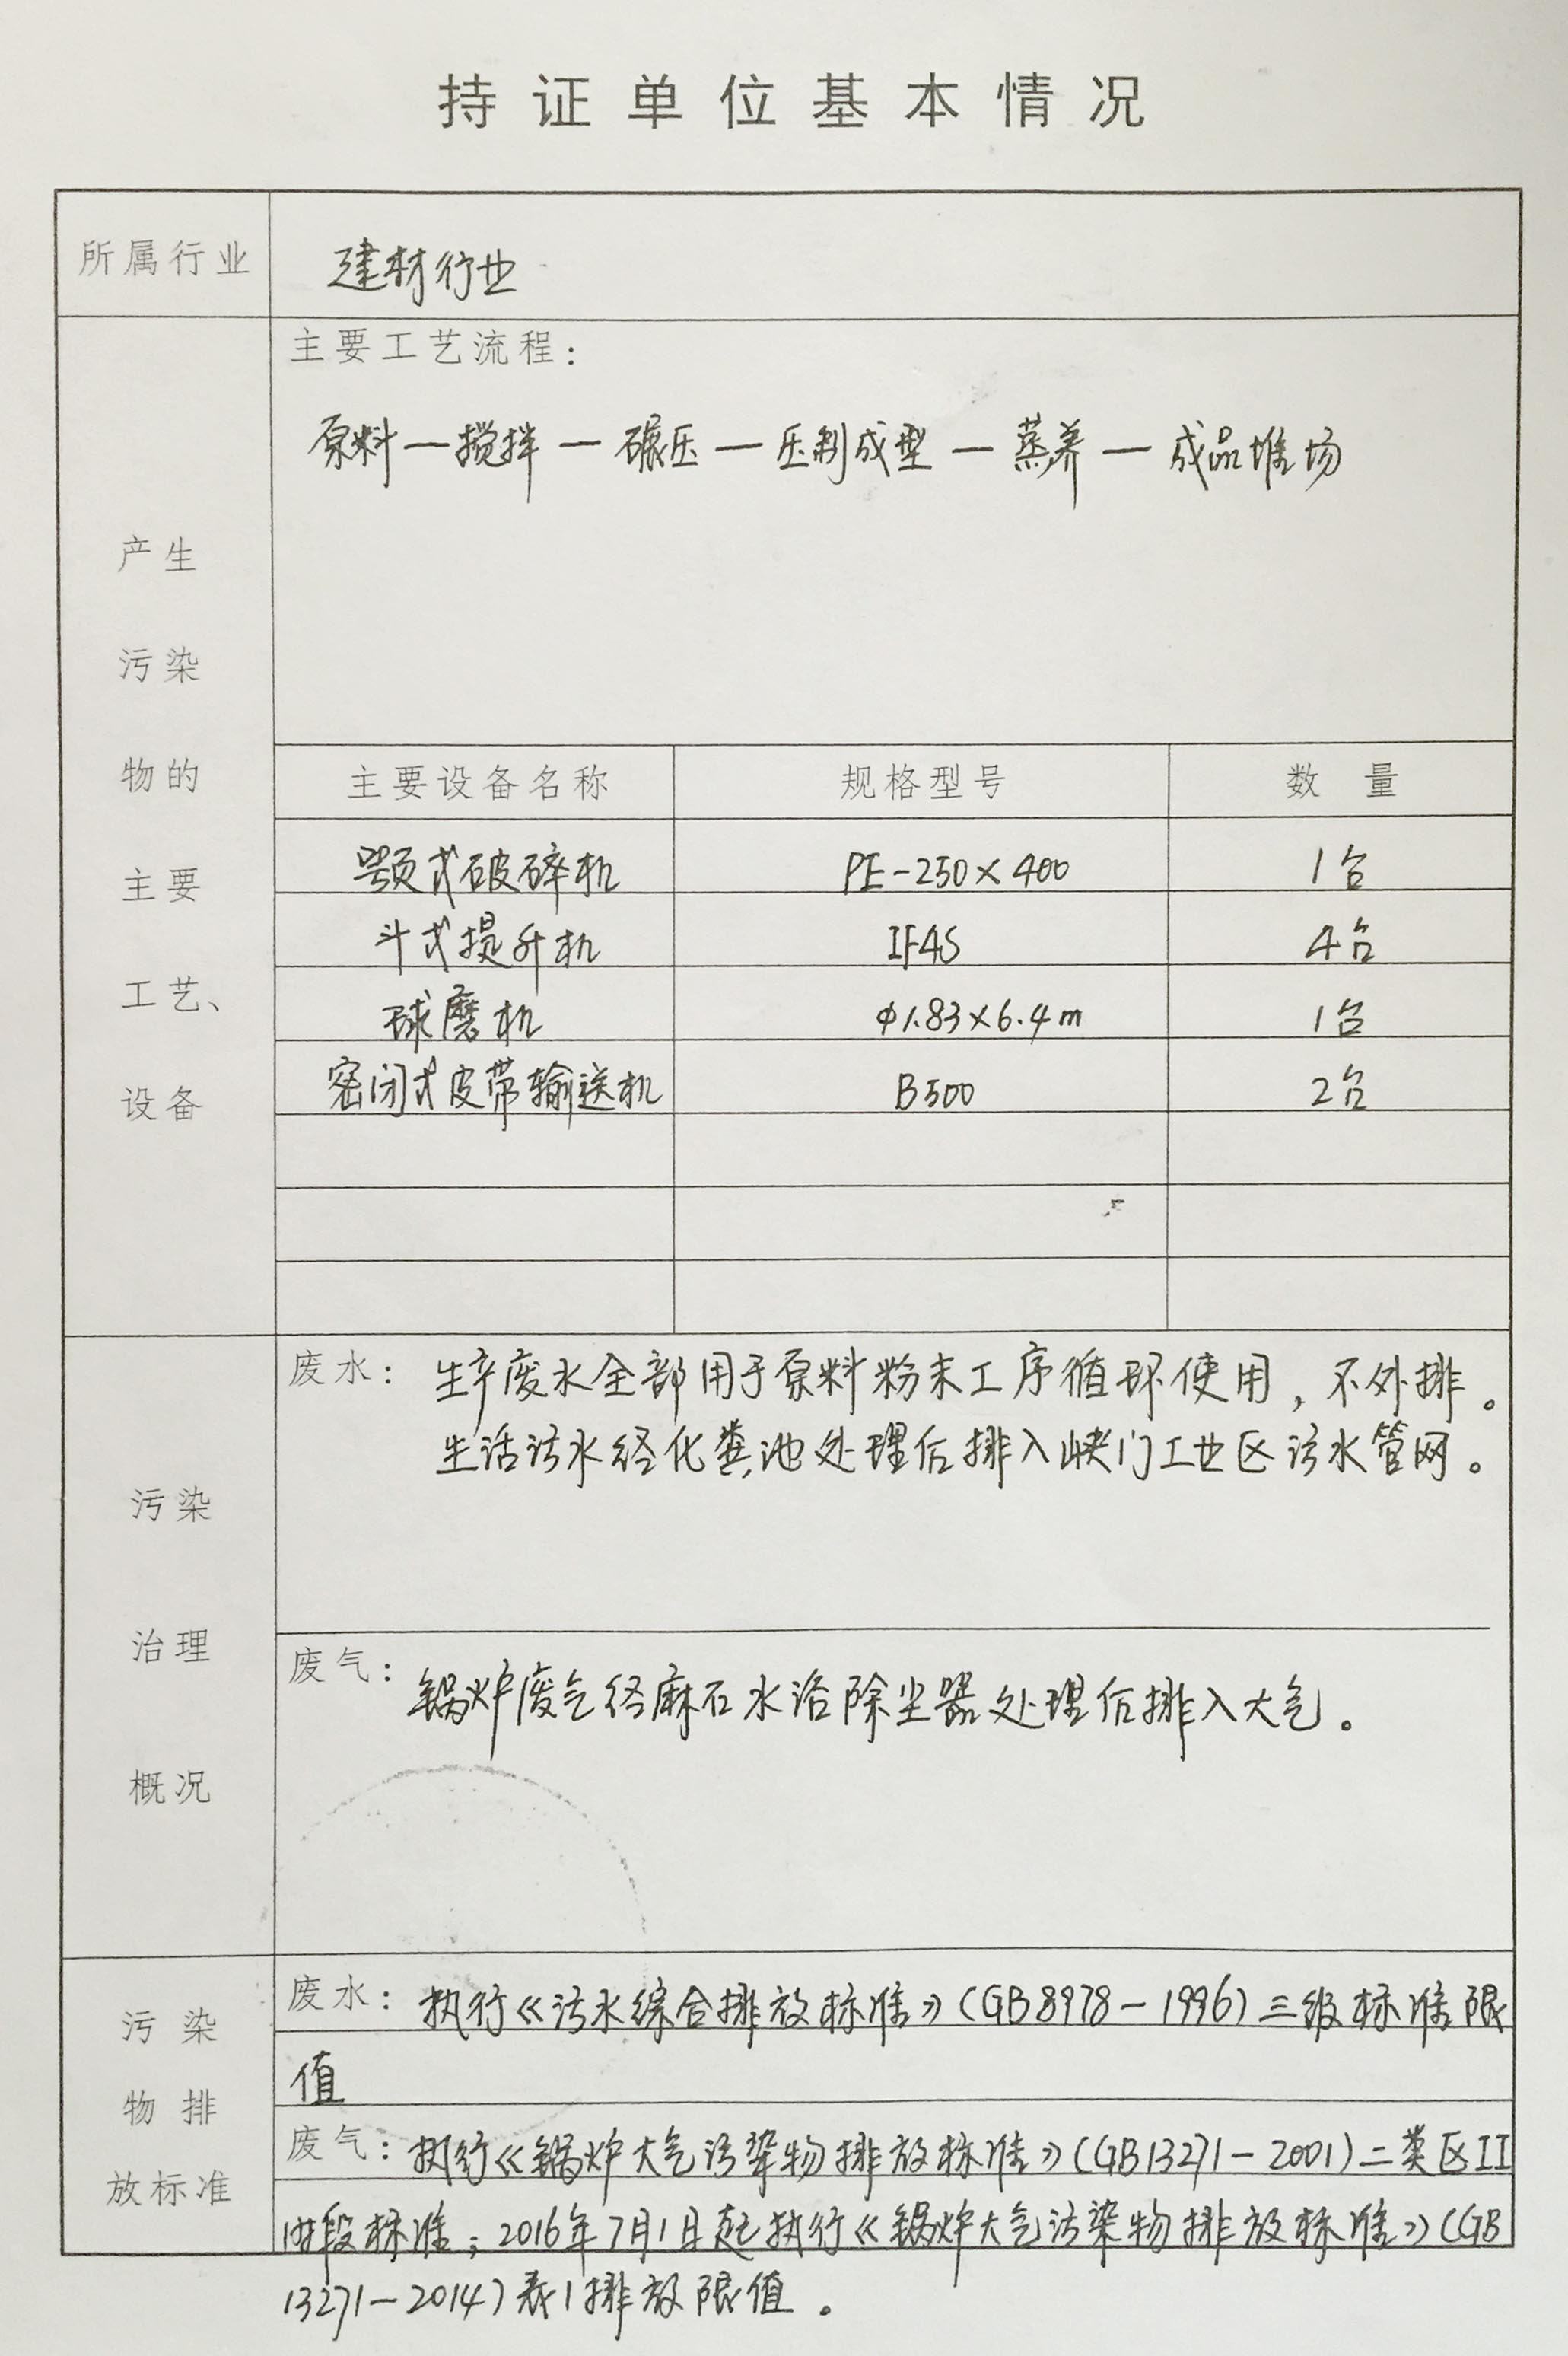 持证单位基本情况
所属行业
建材行业
产生
污染
物的
主要
工艺、
设备
主要工艺流程：
原料—搅拌—碾压—压制成型—蒸养—成品堆场
主要设备名称 规格型号 数量
颚式破碎机 PE-250×400 1台
斗式提升机 IF45 4台
球磨机 φ1.83×6.4m 1台
密闭式皮带输送机 B500 2台
污染
治理
概况
废水：生产废水全部用于原料粉末工序循环使用，不外排。
生活污水经化粪池处理后排入峡门工业区污水管网。
废气：锅炉废气经麻石水浴除尘器处理后排入大气。
污染
物排
放标准
废水：执行《污水综合排放标准》（GB8978-1996）三级标准限
值
废气：执行《锅炉大气污染物排放标准》（GB13271-2001）二类区II
时段标准；2016年7月1日起执行《锅炉大气污染物排放标准》（GB
13271-2014）表1排放限值。